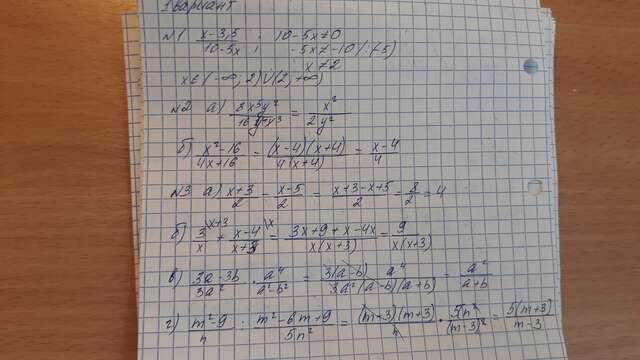 1 вариант
№1 (x-3,5)/(10-5x) ; 10-5x≠0
-5x≠-10 /:(-5)
x≠2
x∈(-∞,2)∪(2,+∞)
№2 а) = x²/(2y²)
б) (x²-16)/(4x+16) = ((x-4)(x+4))/(4(x+4)) = (x-4)/4
№3 а) (x+3)/2 - (x-5)/2 = (x+3-x+5)/2 = 8/2 = 4
б) 3/x \x+3 + (x-4)/(x+3) \x = (3x+9+x-4x)/(x(x+3)) = 9/(x(x+3))
в) (3a-3b)/(3a²) · a⁴/(a²-b²) = (3(a-b) a⁴)/(3a²(a-b)(a+b)) = a⁴/(a+b)
г) (m²-9)/n : (m²-6m+9)/(5n²) = ((m-3)(m+3))/n · 5n²/(m-3)² = 5(m+3)/(m-3)